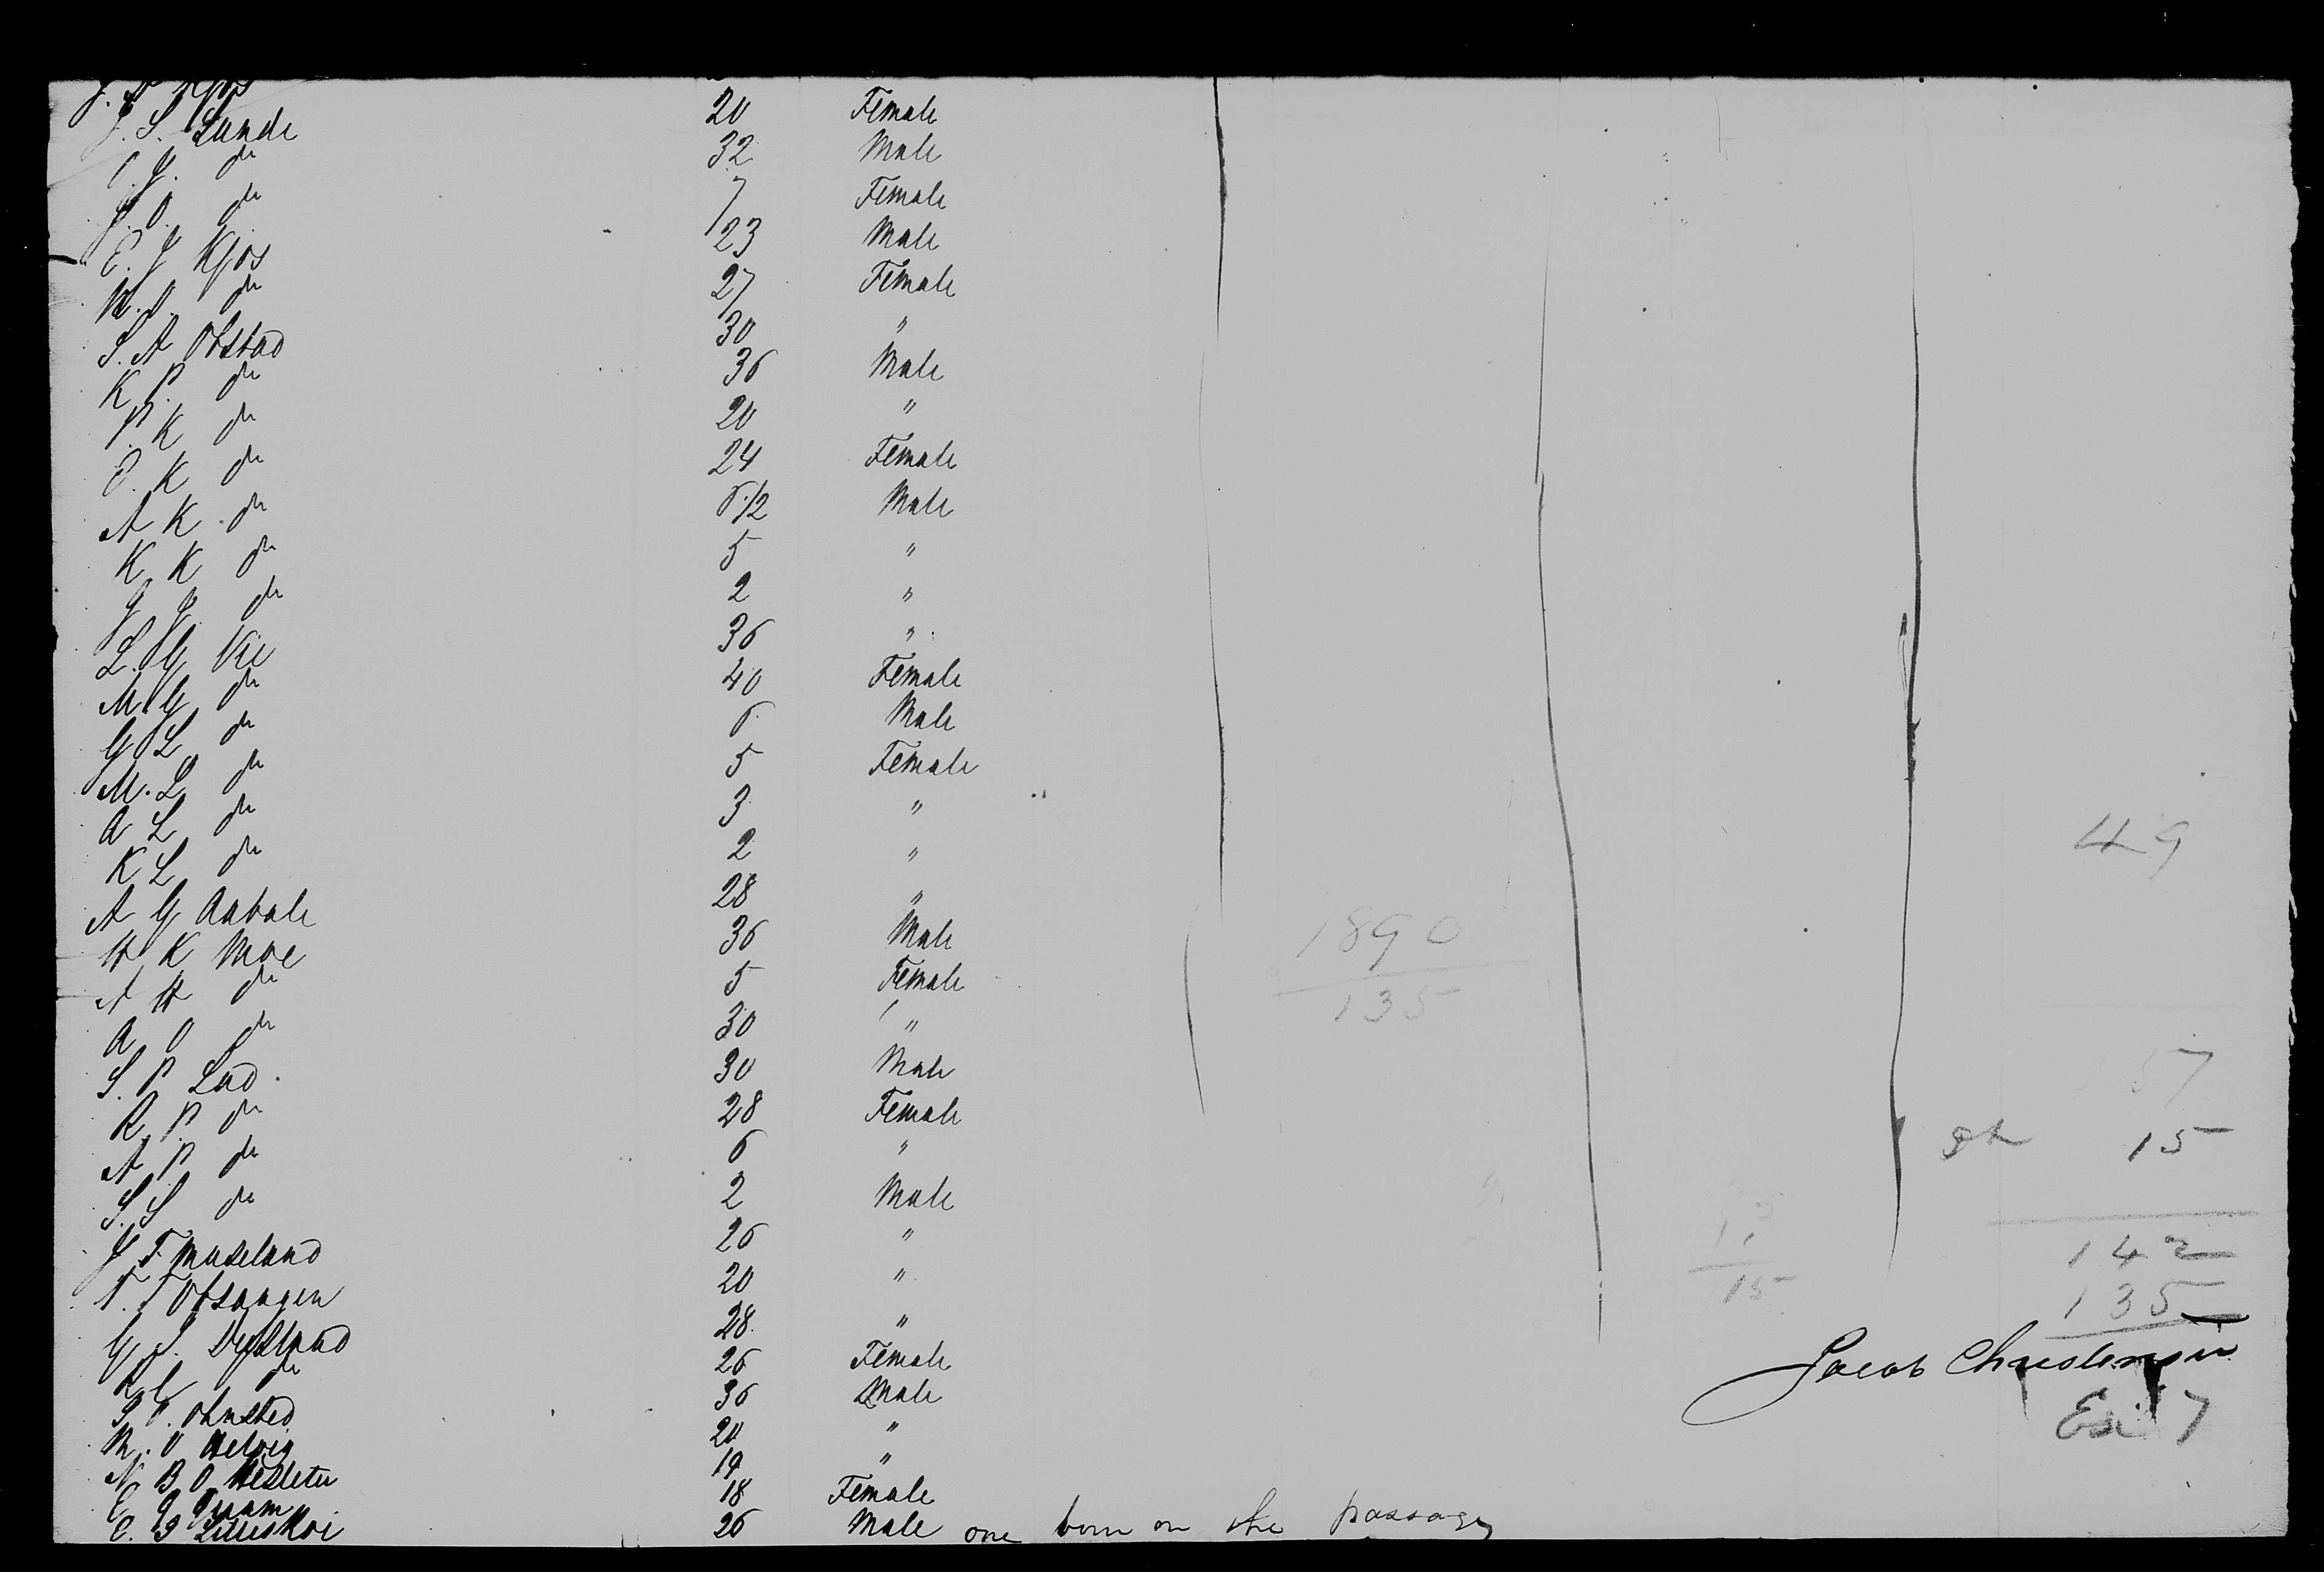 J. S. Lunde 20 Female
do 32 Male
J. O. do 7 Female
E. J Kjos 23 Male
M. O. do 27 Female
S. A Obstad 30 "
K P. do 36 Male
P. K do 20 "
O. K do 24 Female
A K do Male
K K do 5 "
J J. do 2 "
L. G Vie 36 "
M. G do 40 Female
G L do 6 Male
M. L do 5 Female
A L do 3 "
K L do 2 "
A G Aabale 28 "
H K Moe 36 Male
A H do 5 Female
A O do 30 "
S. P Lad 30 Male
R P. do 28 Female
A P do 6 "
S. S do 2 Male
J T. Museland 26 "
T. T 20 "
G. S. 28 "
do 26 Female
36 Male
M. O Helvig 20 "
N B O 19 "
E 18 Female
E. 26 Male one born on the passage
49
1890
135
57
15
15
142
135
Jacob Christensen
Ex 7